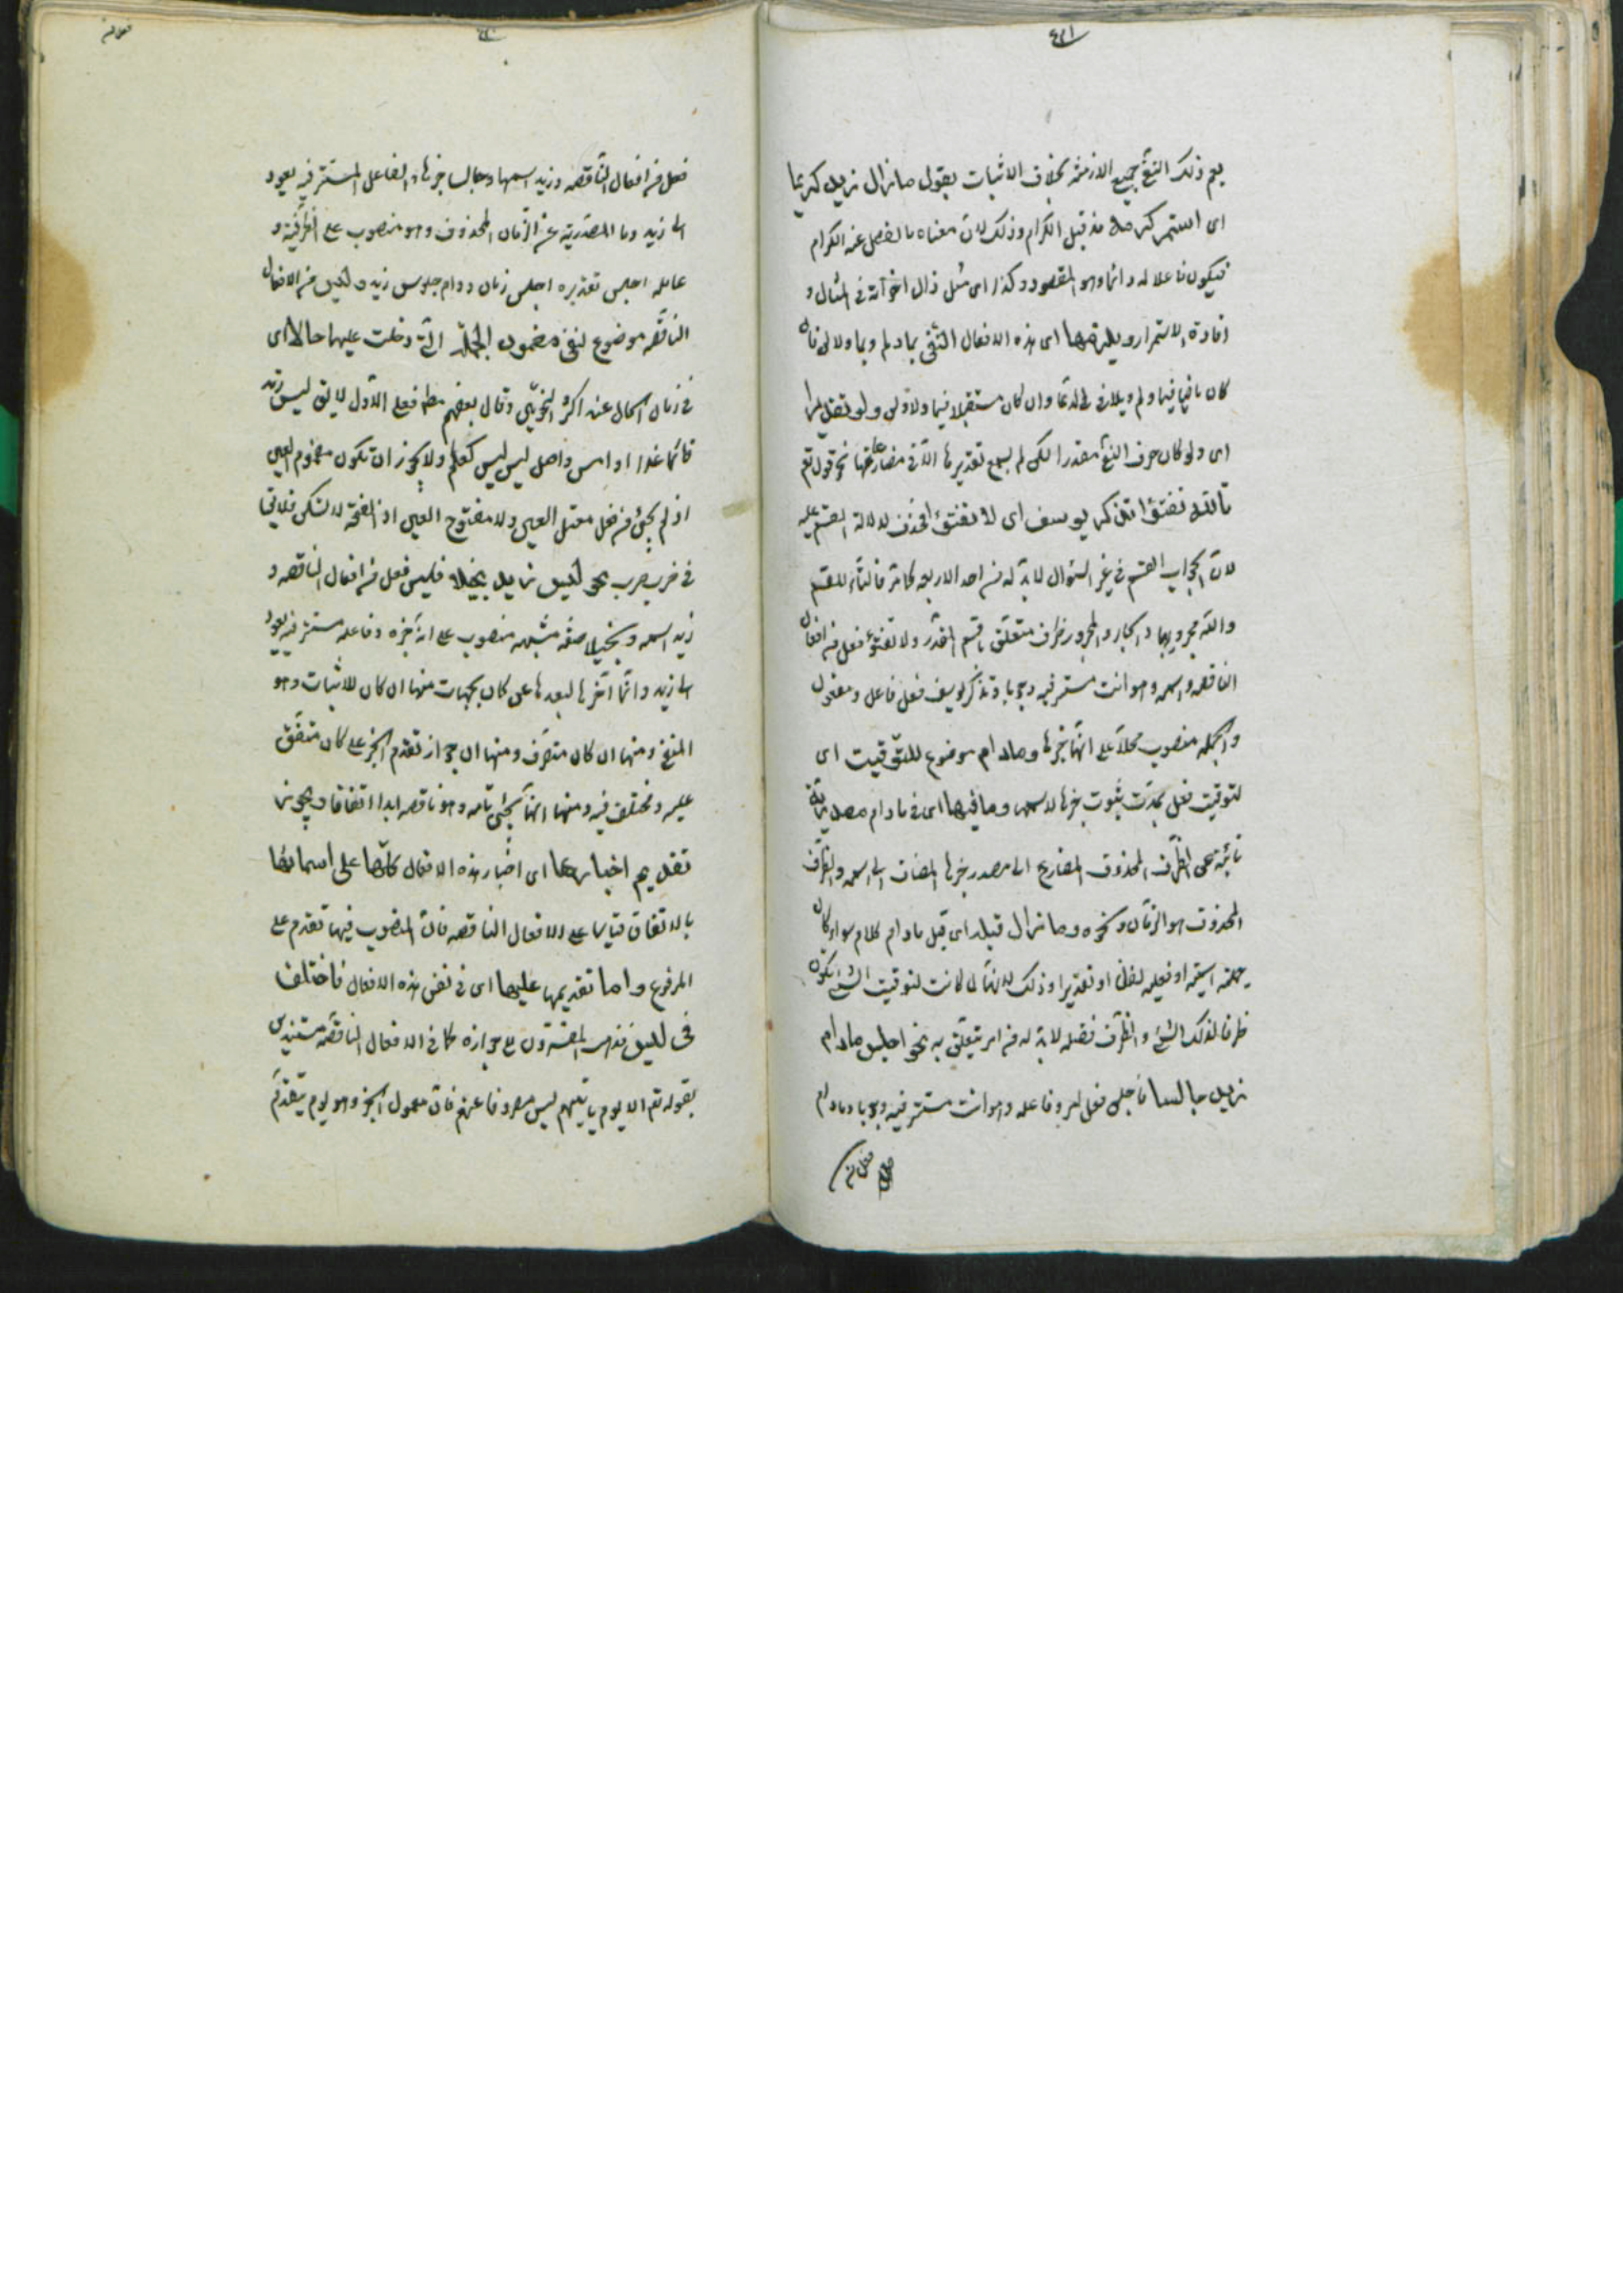 ٤٢١
يعم ذلك النفى جميع الازمنة بخلاف الاثبات يقول ما زال زيد كريما
اى استمر كرمه مذ قبل الكرام وذلك لان معناه ما انفصل عنه الكرام
فيكون فاعلا له دائما وهو المقصود وكذا اى مثل زال اخواته فى المثال و
افادة الاستمرار ويلزمها اى هذه الافعال النفى بما ولم وبما ولا لن فان
كان ماضيا فبما ولم ويلازم وان كان مستقبلا فبما ولا ولن ولو تقديرا
اى ولو كان حرف النفى مقدرا لكن لم يسمع تقديرها الا فى مضارعتها نحو قوله تع
تالله تفتؤا تذكر يوسف اى لا تفتؤ فحذف لا لدلالة القسم عليه
لان الجواب القسم فى غير السؤال لابد له من احد الاربعة كما مر فالتاء للقسم
والله مجرور بها والجار والمجرور ظرف متعلق باقسم المقدر ولا تفتؤ فعل من افعال
الناقصه واسمه وهو انت مستتر فيه وجوبا وتذكر يوسف فعل فاعل ومفعول
والجمله منصوب محلا على انها خبرها وما دام موضوع للتوقيت اى
لتوقيت فعل بمدت ثبوت خبرها لاسمها وما فيها اى فى ما دام مصدرية
نائبة عن الظرف المحذوف المضاف الى مصدر خبرها المضاف الى اسمه والظرف
المحذوف هو الزمان ونحوه وما زال قبله اى قبل ما دام كلام سواء كان
جملة اسميه او فعليه لفظا او تقديرا وذلك لانها لما كانت لتوقيت الشئ تكون
ظرفا لذلك الشئ والظرف فضله لابد له من امر يتعلق به نحو اجلس ما دام
زيد جالسا فاجلس فعل امر وفاعله وهو انت مستتر فيه وجوبا وما دام
فعل من
فعل من افعال الناقصه وزيد اسمها وجالسا خبرها والفاعل المستتر فيه يعود
الى زيد وما المصدرية عن الزمان المحذوف وهو منصوب على الظرفية و
عامله اجلس تقديره اجلس زمان دوام جلوس زيد وليس من الافعال
الناقصه موضوع لنفى مضمون الجملة التى دخلت عليها حالا اى
فى زمان الحال عند اكثر النحويين وقال بعضهم مطلقا فعلى الاول لا يق ليس زيد
قائما غدا او امس واصل ليس ليس كعلم ولا يجوز ان تكون مضموم العين
اذ لم يجئ من فعل معتل العين ولا مفتوح العين اذ الفتحة لا تسكن فلا يق
فى ضرب ضرب نحو ليس زيد بخيلا فليس فعل من افعال الناقصه و
زيد اسمه وبخيلا صفه مشبهه منصوب على انه خبره وفاعله مستتر فيه يعود
الى زيد وانما اخرها لبعدها عن كان بجهات منها ان كان للاثبات وهو
للنفى ومنها ان كان متصرف ومنها ان جواز تقدم الخبر على كان متفق
عليه ومختلف فيه ومنها انها يجئ تامه وهو ناقصه ابدا اتفاقا ويجوز
تقديم اخبارها اى اخبار هذه الافعال كلها على اسمائها
بالاتفاق قياسا على الافعال الناقصه فان المنصوب فيها تقدم على
المرفوع واما تقديمها عليها اى فى نفس هذه الافعال فاختلف
فى ليس فذهب المفسرون على جوازه كما فى الافعال الناقصه مستندين
بقوله تع الا يوم ياتيهم ليس مصروفا عنهم فان معمول الخبر وهو يوم يتقدم